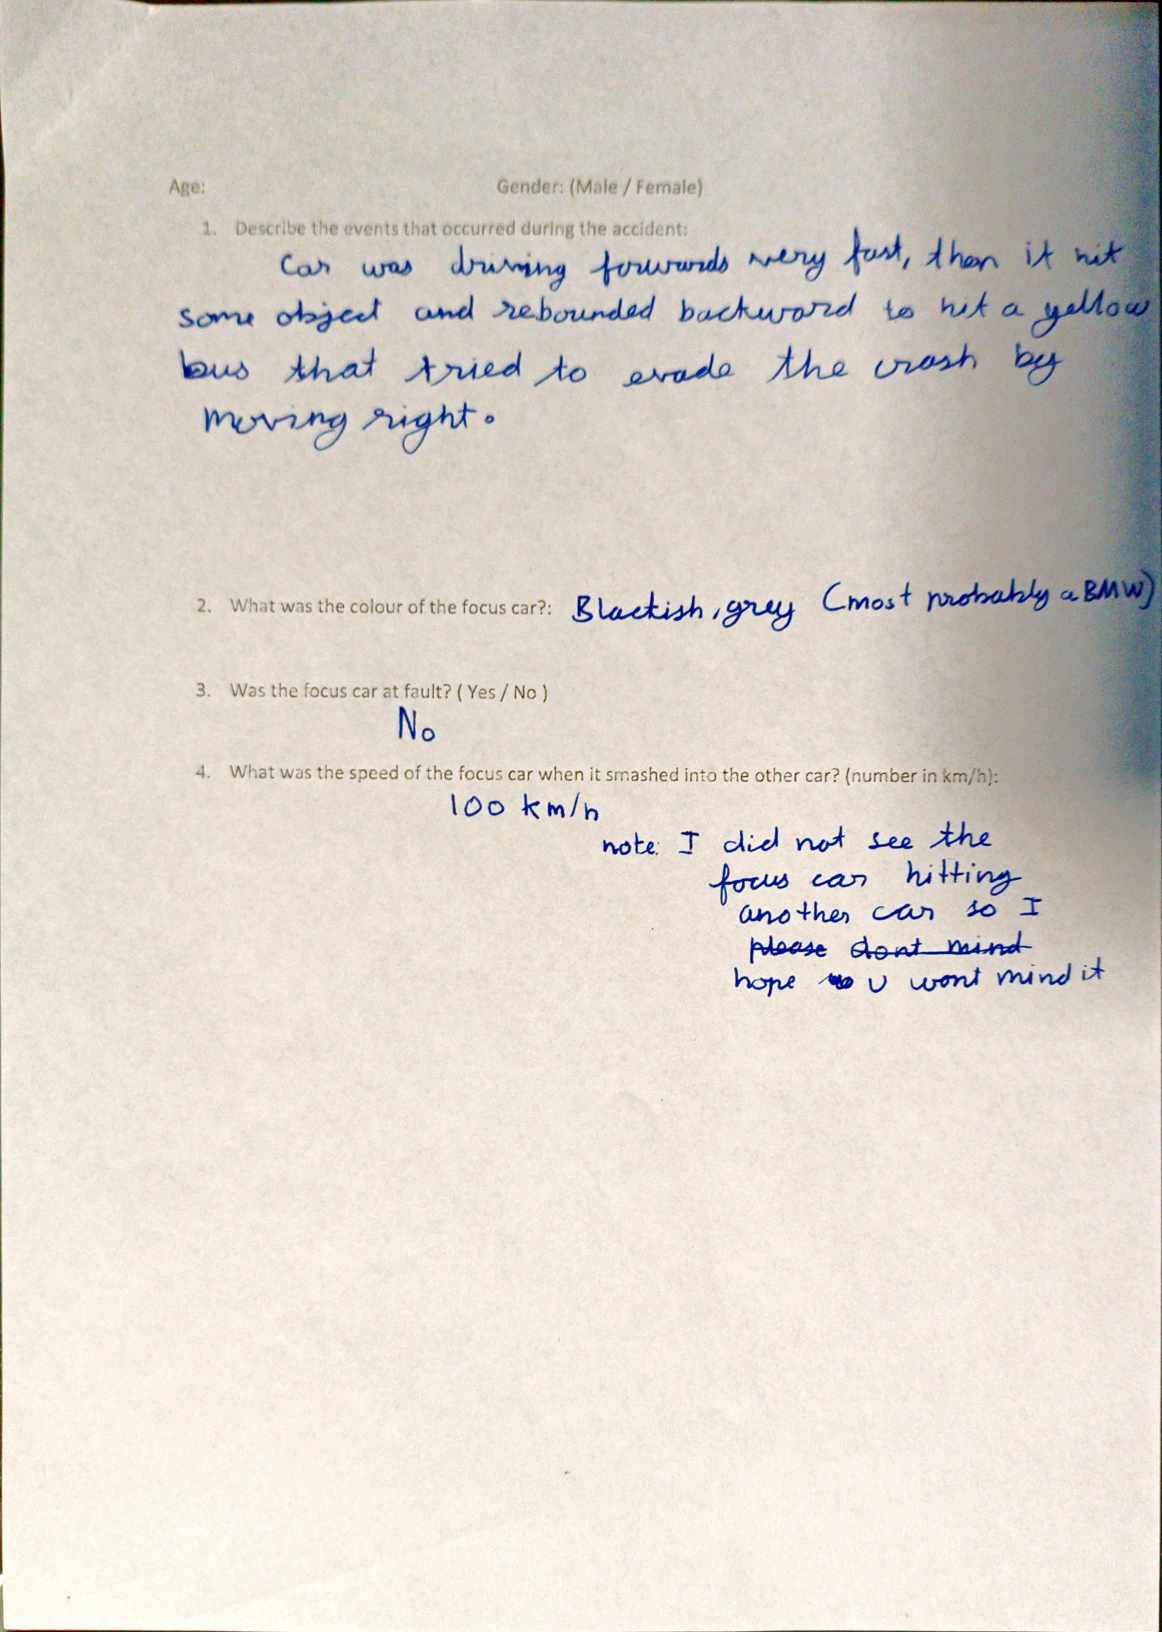 Age: Gender: (Male / Female)
1. Describe the events that occurred during the accident:
Car was driving forwards very fast, then it hit
some object and rebounded backward to hit a yellow
bus that tried to evade the crash by
moving right.
2. What was the colour of the focus car?: Blackish, grey (most probably a BMW)
3. Was the focus car at fault? ( Yes / No )
No
4. What was the speed of the focus car when it smashed into the other car? (number in km/h):
100 km/h
note: I did not see the
focus car hitting
another car so I
please dont mind
hope u wont mind it